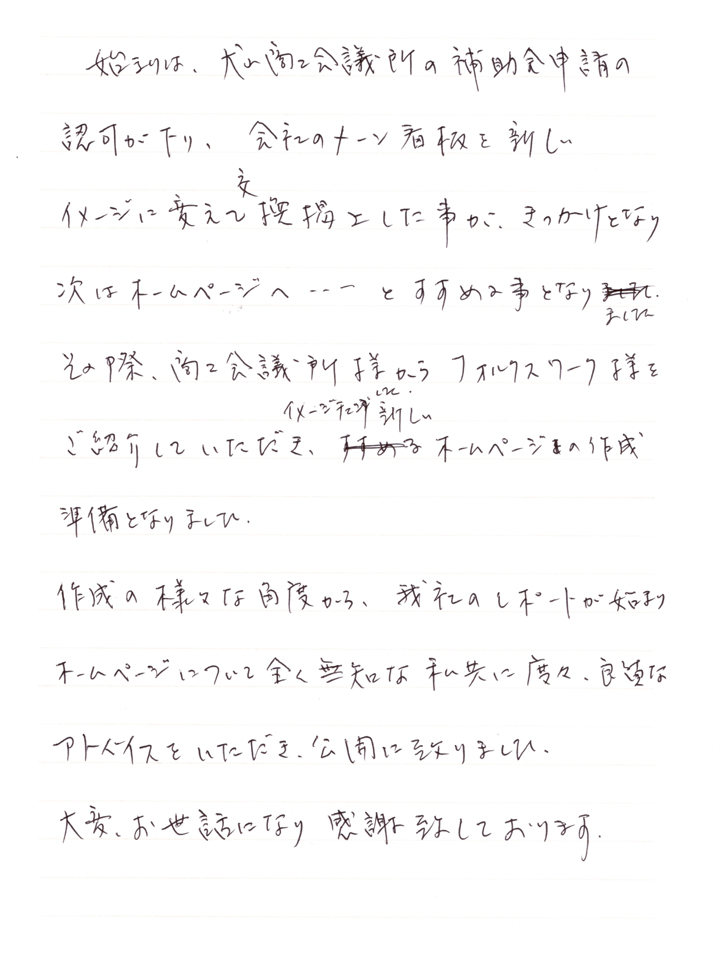 始まりは、犬山商工会議所の補助金申請の
認可が下り、会社のメーン看板を新しい
イメージに変えて交換掲上した事が、きっかけとなり
次はホームページへ…とすすめる事となりました
その際、商工会議所様からフォルクスワーク様を
ご紹介していただき、イメージチェンジして新しいホームページの作成
準備となりました。
作成の様々な角度から、我社のレポートが始まり
ホームページについて全く無知な私共に度々、良質な
アドバイスをいただき、公開に致りました。
大変、お世話になり感謝致しております。